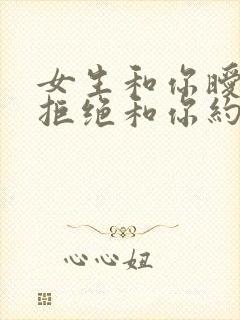 女生和你曖
拒绝和你約
心心妞